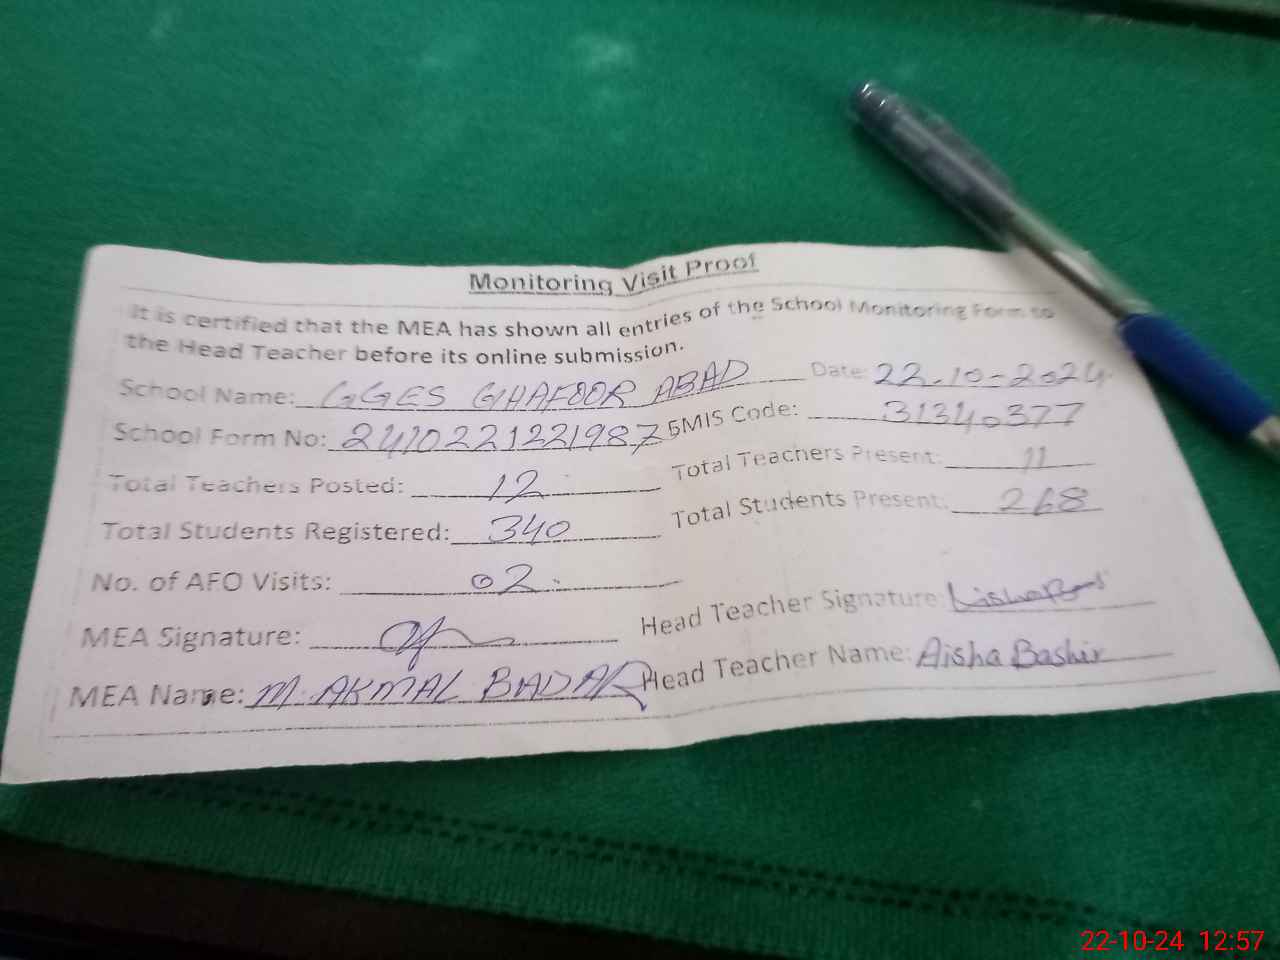 Monitoring Visit Proof
It is certified that the MEA has shown all entries of the School Monitoring Form to
the Head Teacher before its online submission.
School Name: GGES GHAFOOR ABAD Date: 22-10-2024
School Form No: 2410221221987 EMIS Code: 31340377
Total Teachers Posted: 12 Total Teachers Present: 11
Total Students Registered: 340 Total Students Present: 268
No. of AFO Visits: 02
MEA Signature: Head Teacher Signature:
MEA Name: M. AKMAL BADAR Head Teacher Name: Aisha Bashir
22-10-24 12:57